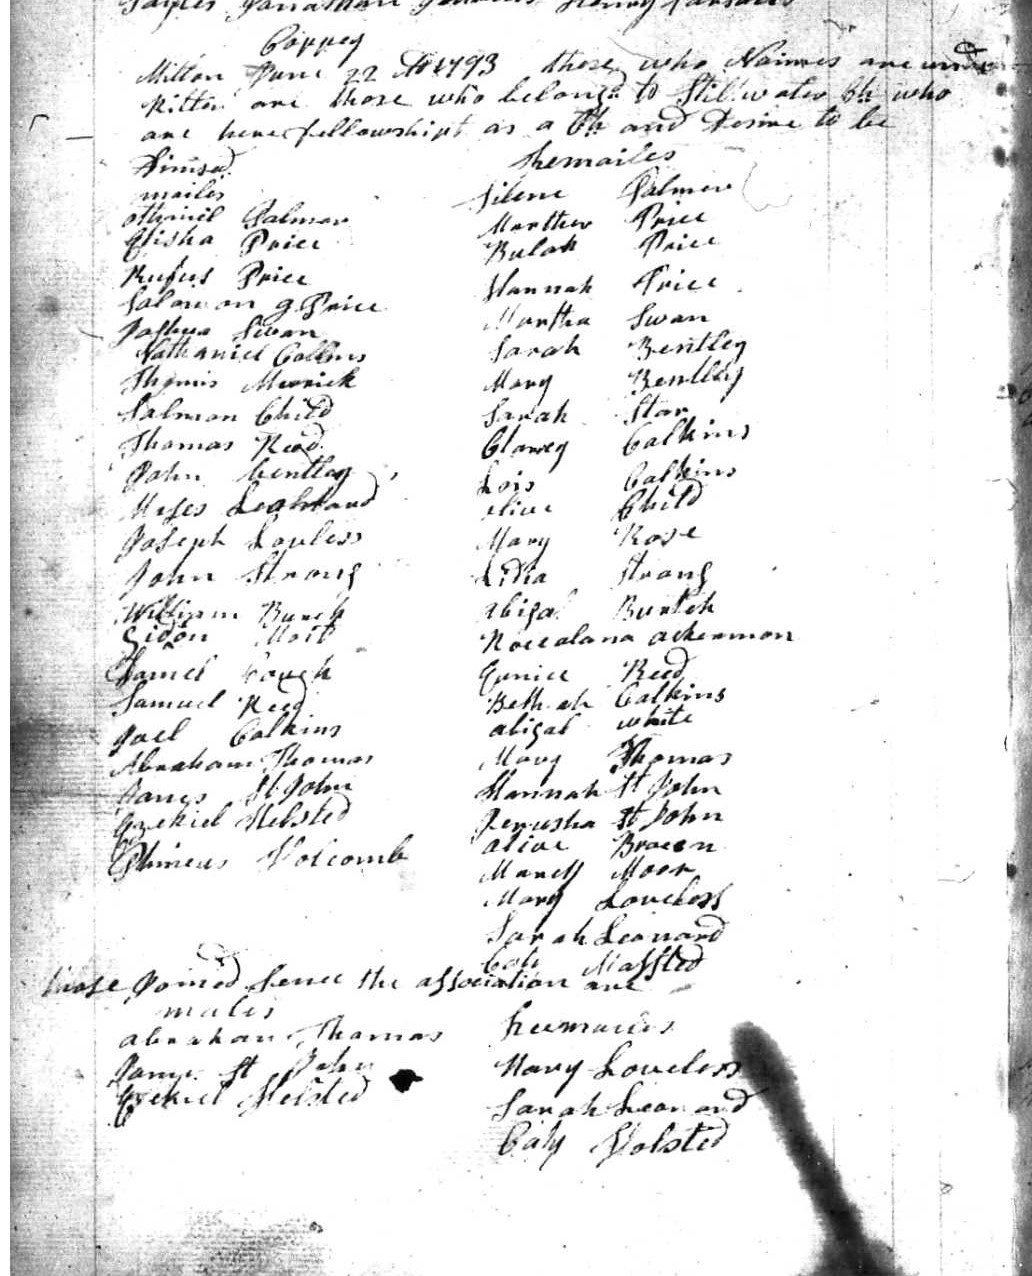 Sayles Jonathan Henry Parsons
Coppey
Milton June 22 AD 1793 those who Naimes are under
Ritten are those who belongd to Stillwater Ch who
are here fellowshipt as a Ch and Desire to be
Dimised
mailes
othniel Palmer
Elisha Price
Rufus Price
Salomon g. Price
Joshua Swan
Nathaniel Collins
Thomis Merrick
Salmon Child
Thomas Reed
John bentley
Moses
Joseph Lovless
John Strong
William Burch
Gidon Mott
Samuel Reed
Joel Calkins
Abraham Thomas
James St John
Ezekiel Helsted
Phineus Holcomb
Feemailes
Silene Palmer
Marther Price
Bulah Price
Hannah Price
Martha Swan
Sarah Bentley
Mary Bentley
Sarah Star
Clarrey Calkins
Lois Calkins
alice Child
Mary Rose
Lidia Strong
abigal Burtch
Roccalana ackermon
Eunice Reed
Bethiah Calkins
abigal white
Mary Thomas
Hannah St John
Jerusha St John
alice Brown
Marcy Moor
Mary Loveless
Sarah Leonard
Caty
those Joined sence the association are
males
abraham Thomas
James St John
Ezekiel Helsted
Feemailes
Mary Loveless
Sarah Leonard
Caty Holsted